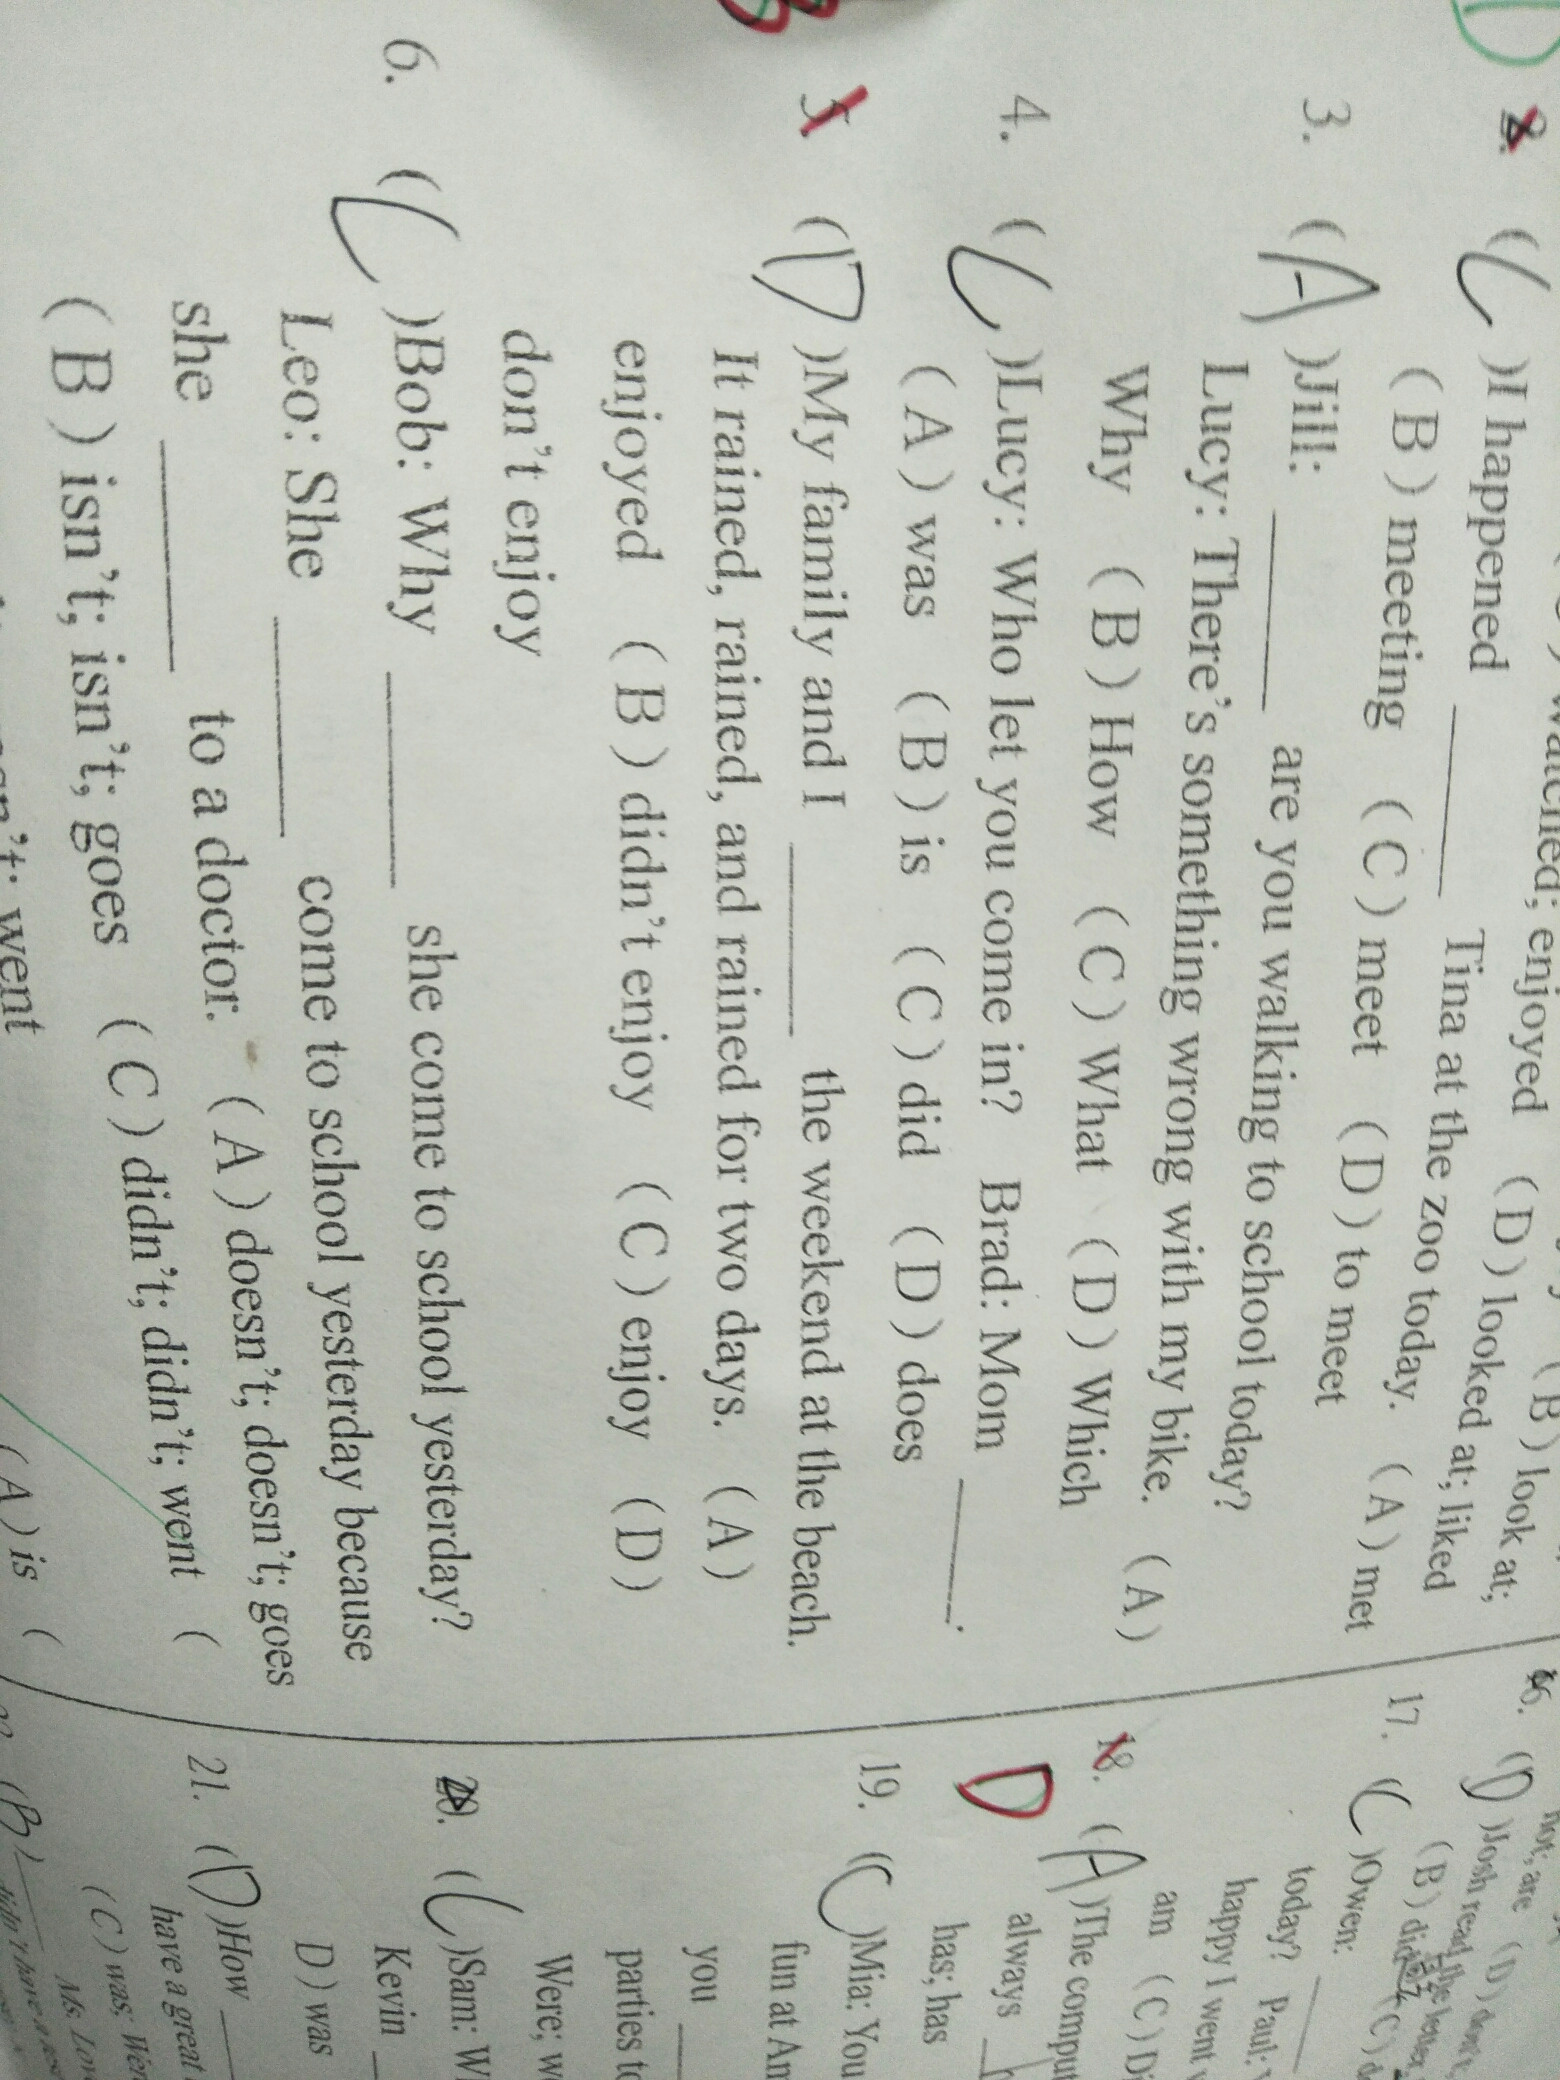 (B) look at;
watched; enjoyed (D) looked at; liked
2. (C)I happened ______ Tina at the zoo today. (A) met
(B) meeting (C) meet (D) to meet
3. (A)Jill: ______ are you walking to school today?
Lucy: There's something wrong with my bike. (A)
Why (B) How (C) What (D) Which
4. (C)Lucy: Who let you come in? Brad: Mom ______.
(A) was (B) is (C) did (D) does
B
5. (D)My family and I ______ the weekend at the beach.
It rained, rained, and rained for two days. (A)
enjoyed (B) didn't enjoy (C) enjoy (D)
don't enjoy
6. (C)Bob: Why ______ she come to school yesterday?
Leo: She ______ come to school yesterday because
she ______ to a doctor. (A) doesn't; doesn't; goes
(B) isn't; isn't; goes (C) didn't; didn't; went (
went
(A) is (
not; are (D) don't;
16. (D)Josh read the letter,
(B) did (C)
17. (C)Owen:
today? Paul:
happy I went
am (C) Di
18. (A)The comput
D
always
has; has
19. (C)Mia: You
fun at Am
you
parties to
Were; w
20. (C)Sam: W
Kevin
D) was
21. (D)How
have a great
(C) was; Were
(B)
Ms. Lov